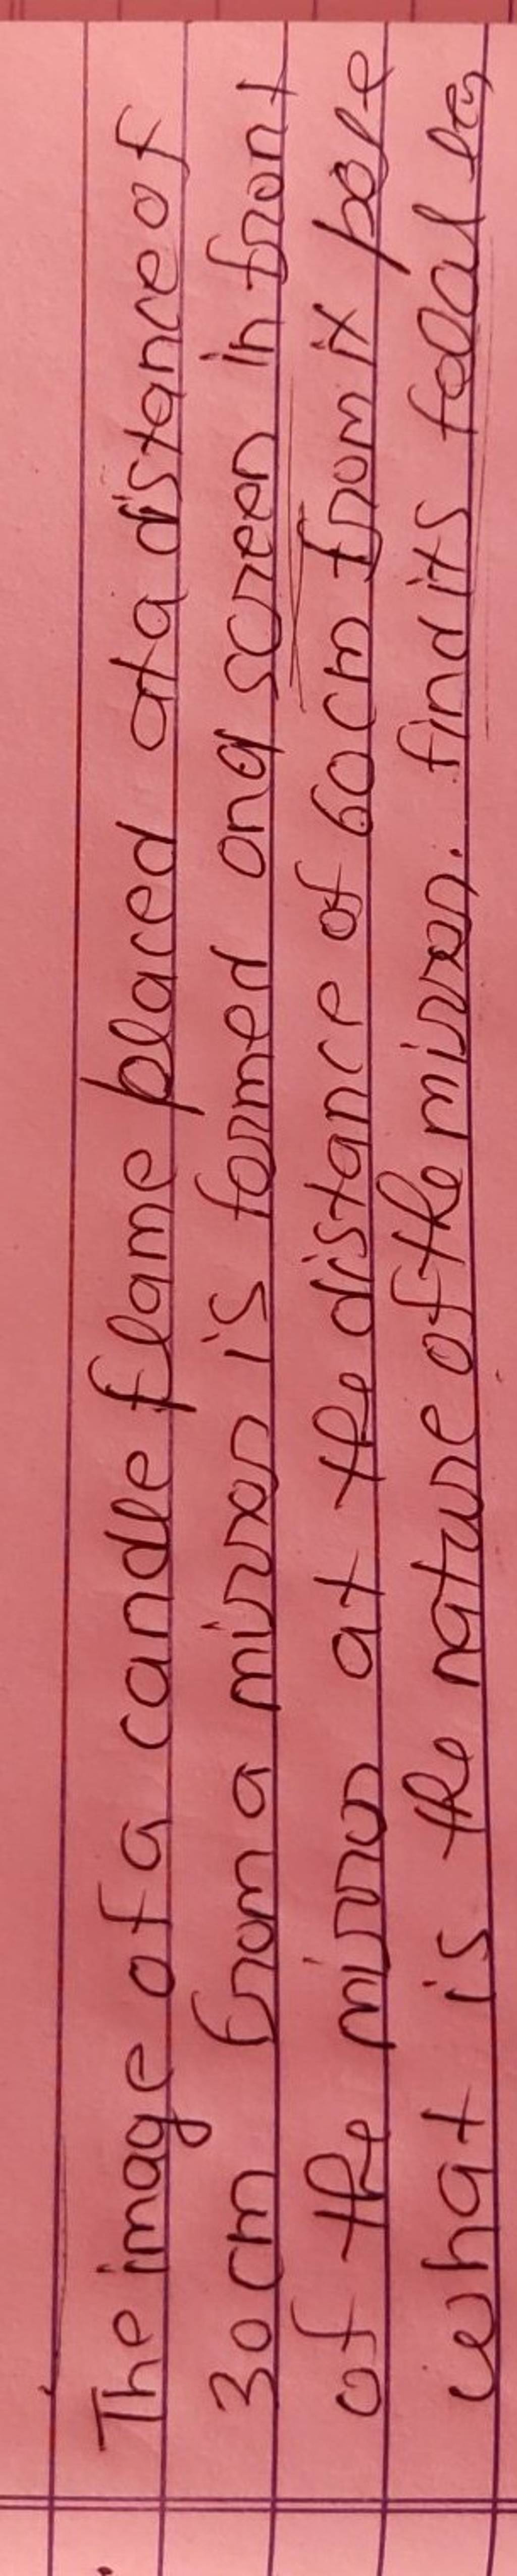 The image of a candle flame placed at a distance of
30 cm from a mirror is formed on a screen in front
of the mirror at the distance of 60 cm from it pole
what is the nature of the mirror. find its focal